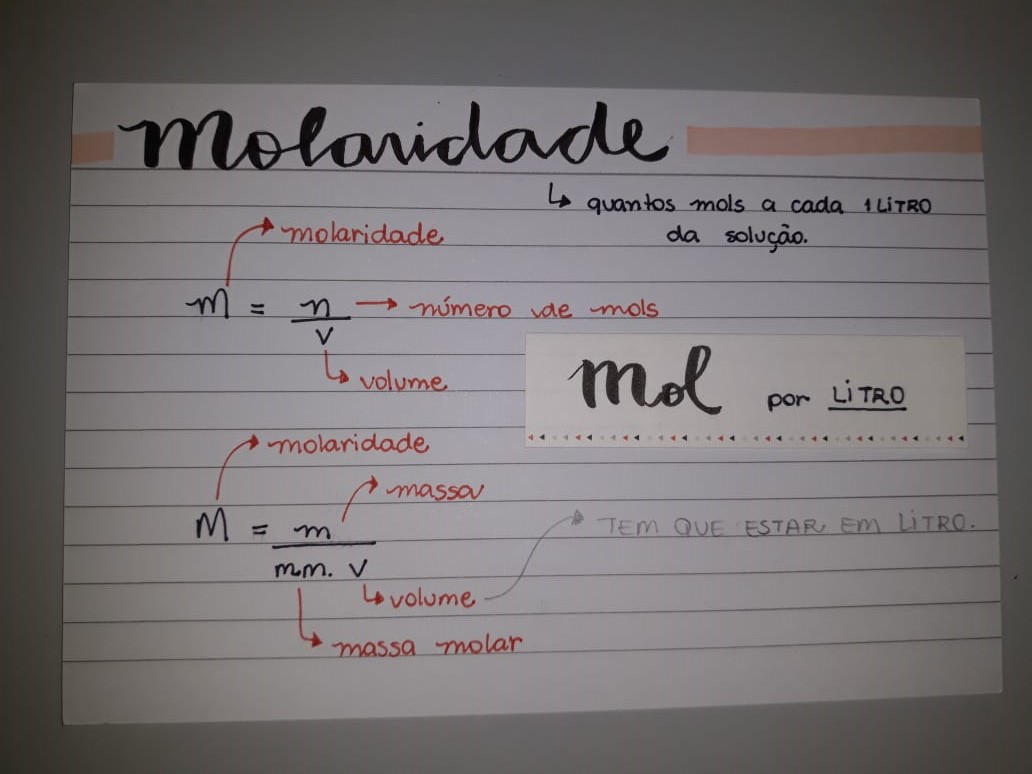 Molaridade
↳ quantos mols a cada 1 LITRO
da solução.
molaridade
M = n/v → número de mols
volume
mol por LITRO
molaridade
massa
M = m/mm. v
TEM QUE ESTAR EM LITRO.
volume
massa molar